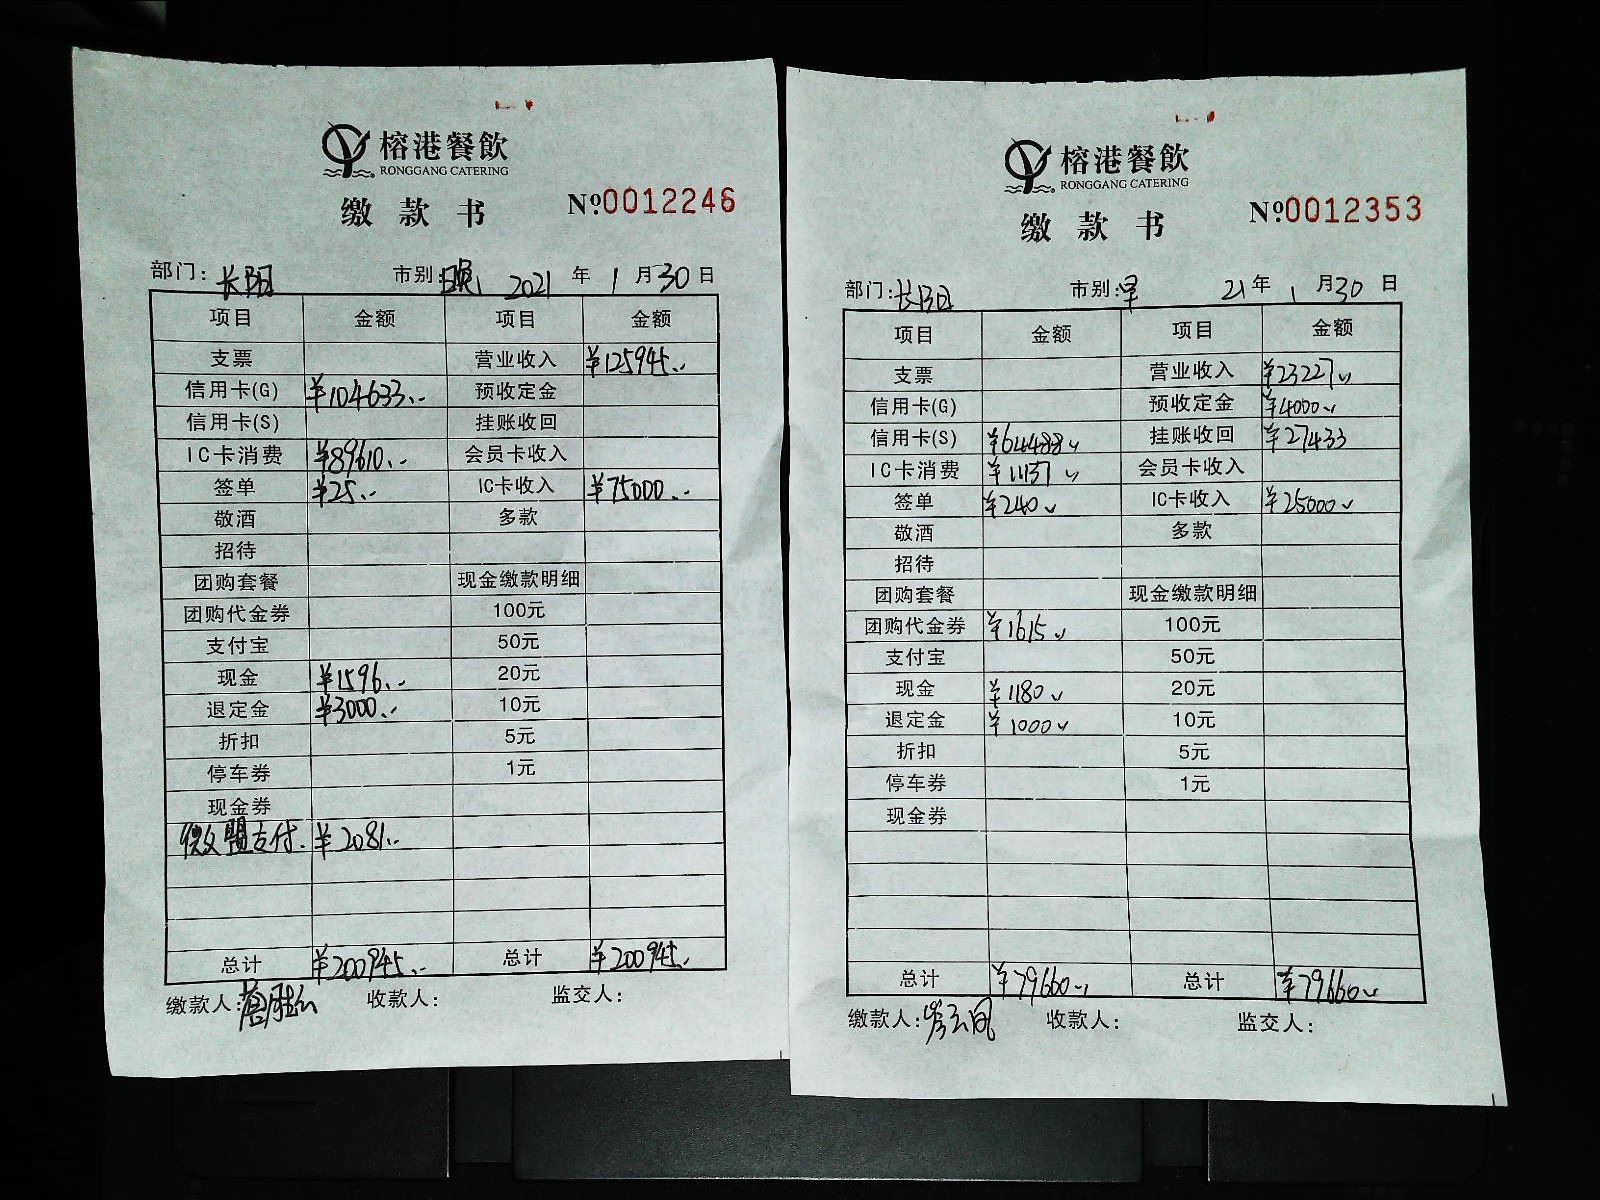 榕港餐飲
RONGGANG CATERING
缴款书 №0012246
部门:长阳 市别:晚 2021年1月30日
项目 金额 项目 金额
支票 营业收入 ¥125945.-
信用卡(G) ¥104633.- 预收定金
信用卡(S) 挂账收回
IC卡消费 ¥89610.- 会员卡收入
签单 ¥25.- IC卡收入 ¥75000.-
敬酒 多款
招待
团购套餐 现金缴款明细
团购代金券 100元
支付宝 50元
现金 ¥1596.- 20元
退定金 ¥3000.- 10元
折扣 5元
停车券 1元
现金券
微盟支付. ¥2081.-
总计 ¥200945.- 总计 ¥200945.-
缴款人: 收款人: 监交人:
榕港餐飲
RONGGANG CATERING
缴款书 №0012353
部门:长阳 市别:早 21年1月30日
项目 金额 项目 金额
支票 营业收入 ¥23227
信用卡(G) 预收定金 ¥4000
信用卡(S) ¥64488 挂账收回 ¥27433
IC卡消费 ¥11137 会员卡收入
签单 ¥240 IC卡收入 ¥25000
敬酒 多款
招待
团购套餐 现金缴款明细
团购代金券 ¥1615 100元
支付宝 50元
现金 ¥1180 20元
退定金 ¥1000 10元
折扣 5元
停车券 1元
现金券
总计 ¥79660 总计 ¥79660
缴款人: 收款人: 监交人: